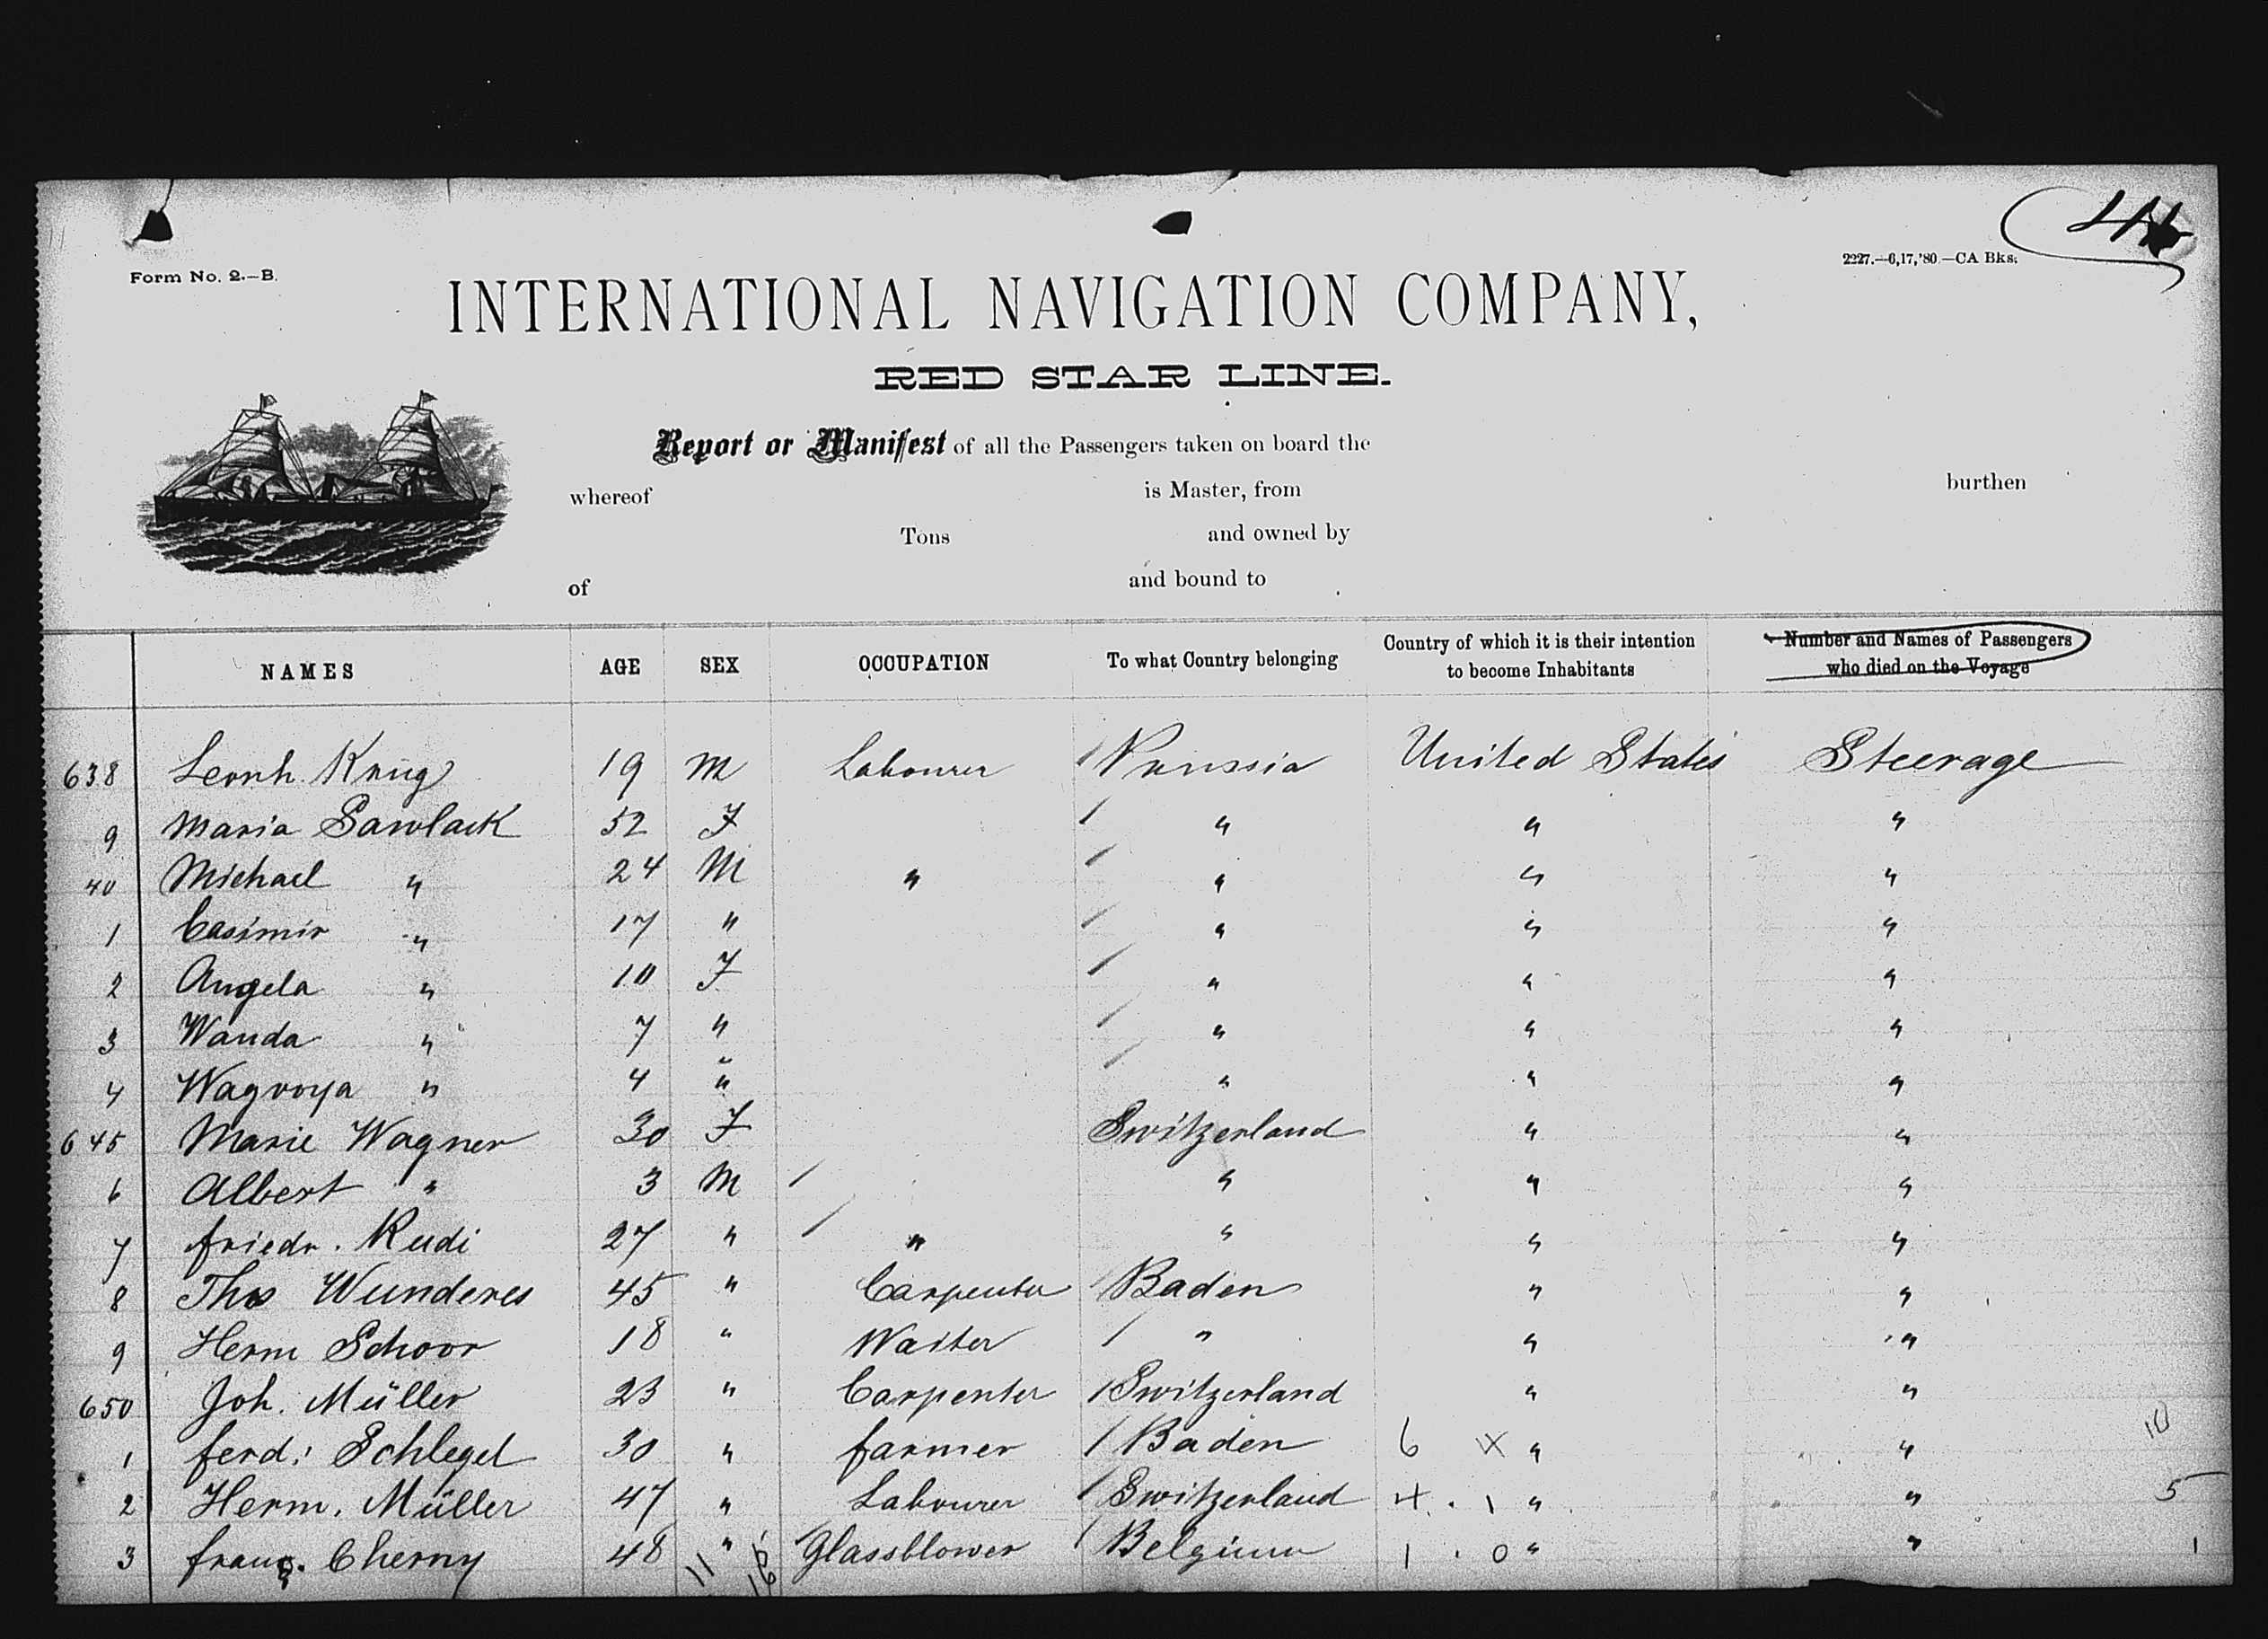 44
Form No. 2.—B.
2227.—6,17,'80.—CA Bks.
INTERNATIONAL NAVIGATION COMPANY,
RED STAR LINE.
Report or Manifest of all the Passengers taken on board the
whereof is Master, from burthen
Tons and owned by
of and bound to
NAMES AGE SEX OCCUPATION To what Country belonging Country of which it is their intention to become Inhabitants Number and Names of Passengers who died on the Voyage
638 Leonh. Krug 19 M Labourer Prussia United States Steerage
9 Maria Sawlack 52 F " " "
40 Michael " 24 M " " " "
1 Casimir " 17 " " " "
2 Angela " 10 F " " "
3 Wanda " 7 " " " "
4 Wagroya " 4 " " " "
645 Marie Wagner 30 F Switzerland " "
6 Albert " 3 M " " "
7 friedr. Rudi 27 " " " " "
8 Ths Wunderes 45 " Carpenter Baden " "
9 Herm Schoor 18 " Waiter " " "
650 Joh. Müller 23 " Carpenter Switzerland " "
1 ferd: Schlegel 30 " farmer Baden 6 4 " " 10
2 Herm. Müller 47 " Labourer Switzerland 4 . 1 " " 5
3 franz. Cherny 48 " Glassblower Belgium 1 . 0 " " 1
11